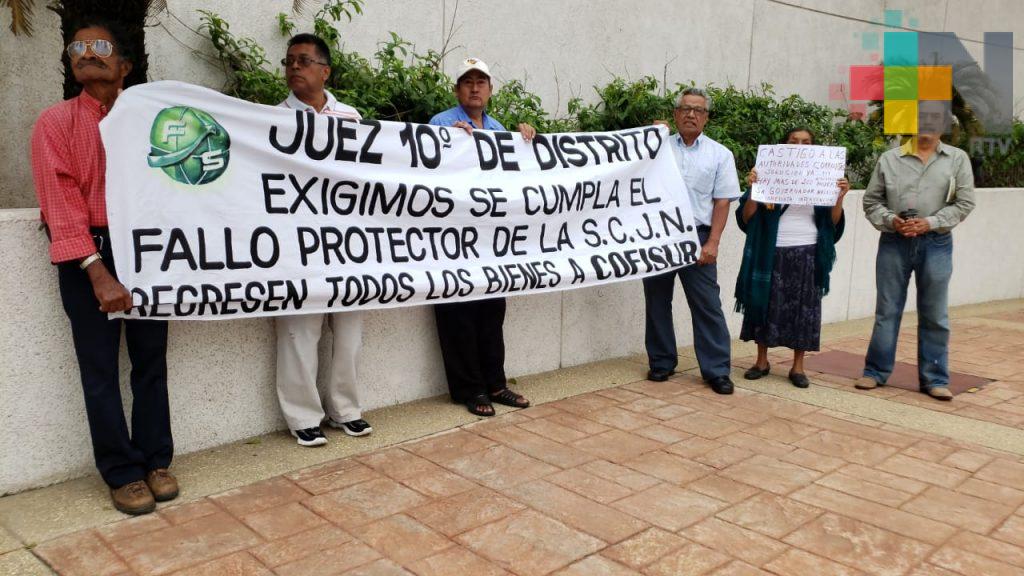 JUEZ 10º DE DISTRITO
EXIGIMOS SE CUMPLA EL
FALLO PROTECTOR DE LA S.C.J.N.
REGRESEN TODOS LOS BIENES A COFISUR
FS
CASTIGO A LAS
AUTORIDADES
SOLUCION YA !!!
HAY MAS DE 200
SR GOBERNADOR
INMEDIATA INTERVENCION
RTV